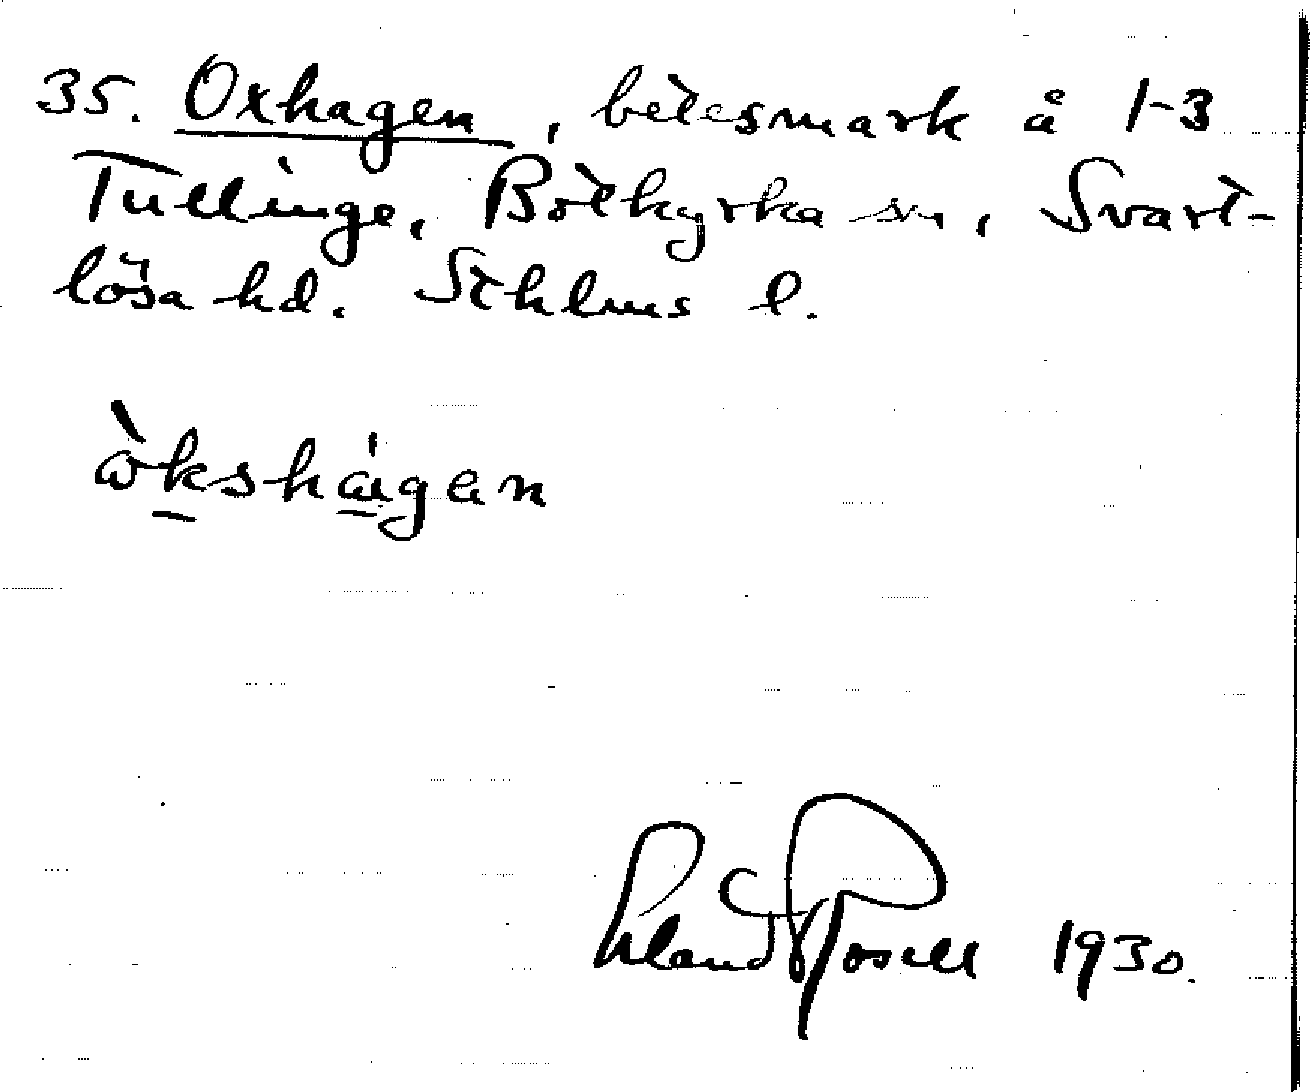 35. Oxhagen, betesmark å 1-3
Tullinge, Botkyrka sn, Svart-
lösa hd. Sthlms l.
ὼkshágen
Erland Rosell 1930.